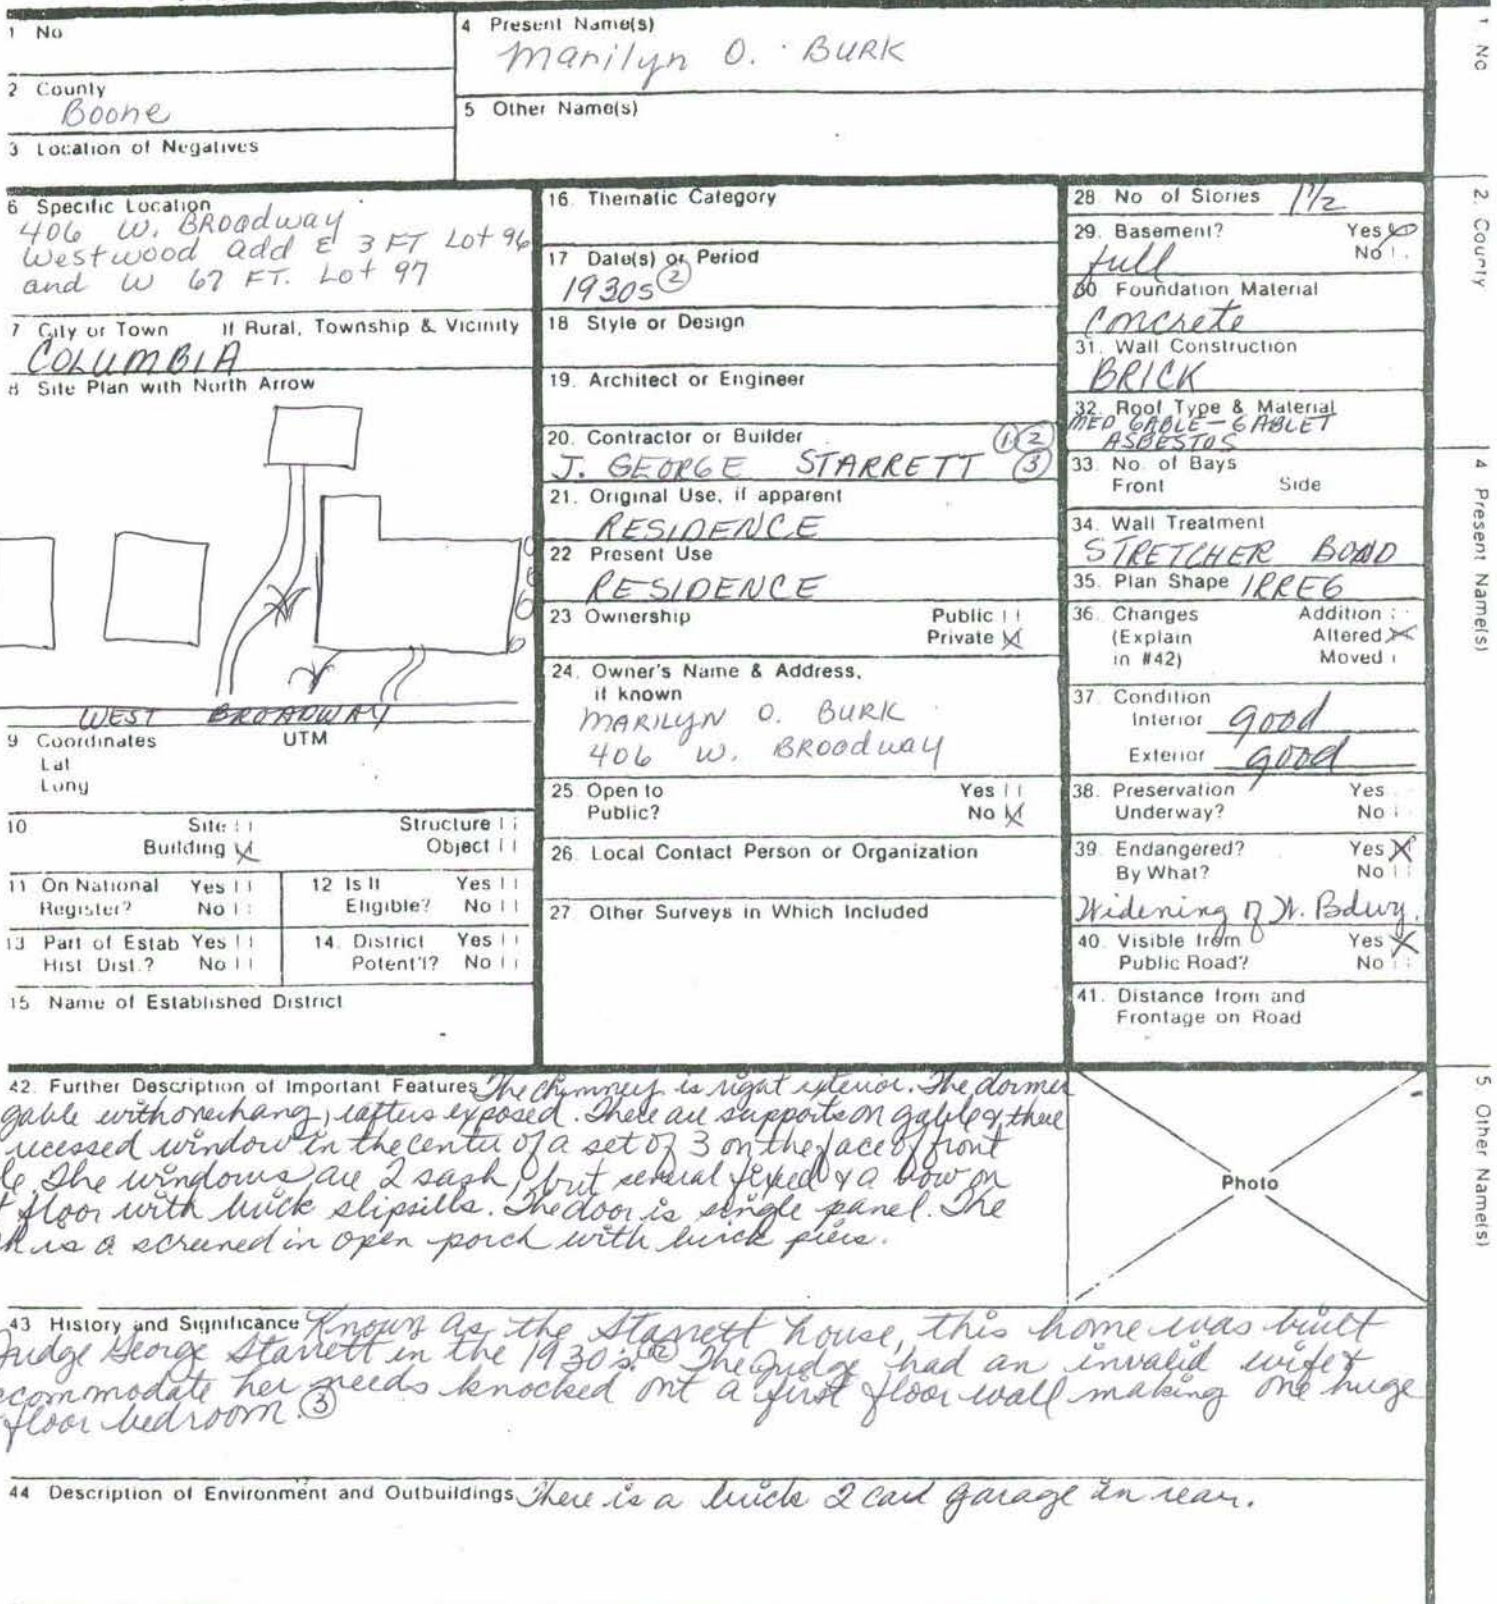 1 No
4 Present Name(s)
Marilyn O. BURK
2 County
Boone
5 Other Name(s)
3 Location of Negatives
6 Specific Location
406 W. BROADWAY
Westwood add E 3 FT Lot 96
and W 67 FT. Lot 97
7 City or Town If Rural, Township & Vicinity
COLUMBIA
8 Site Plan with North Arrow
WEST BROADWAY
9 Coordinates UTM
Lat
Long
10 Site
Structure
Building X
Object
11 On National Register? Yes No
12 Is It Eligible? Yes No
13 Part of Estab Hist Dist.? Yes No
14. District Potent'l? Yes No
15 Name of Established District
16. Thematic Category
17 Date(s) or Period
1930s ②
18 Style or Design
19. Architect or Engineer
20. Contractor or Builder ① ②
J. GEORGE STARRETT ③
21. Original Use, if apparent
RESIDENCE
22 Present Use
RESIDENCE
23 Ownership Public
Private X
24. Owner's Name & Address,
if known
MARILYN O. BURK
406 W. BROADWAY
25. Open to Yes
Public? No X
26. Local Contact Person or Organization
27. Other Surveys in Which Included
28. No of Stories 1 1/2
29. Basement? Yes
No
full
30. Foundation Material
Concrete
31. Wall Construction
BRICK
32. Roof Type & Material
MED GABLE - GABLET
ASBESTOS
33. No. of Bays
Front Side
34. Wall Treatment
STRETCHER BOND
35. Plan Shape IRREG
36. Changes Addition
(Explain Altered X
in #42) Moved
37. Condition
Interior good
Exterior good
38. Preservation Yes
Underway? No
39. Endangered? Yes X
By What? No
Widening of W. Bdwy.
40. Visible from Yes X
Public Road? No
41. Distance from and
Frontage on Road
42. Further Description of Important Features The chimney is right exterior. The dormer
gable with overhang, rafters exposed. There are supports on gable & there
recessed window in the center of a set of 3 on the face of front
le The windows are 2 sash, but several fixed & a bow on
floor with brick slipsills. The door is single panel. The
is a screened in open porch with brick piers.
Photo
43 History and Significance Known as the Starrett house, this home was built
Judge George Starrett in the 1930's. ② The Judge had an invalid wife &
ccommodate her needs knocked out a first floor wall making one huge
floor bedroom. ③
44 Description of Environment and Outbuildings There is a brick 2 car garage in rear.
1 No
2. County
4 Present Name(s)
5 Other Name(s)